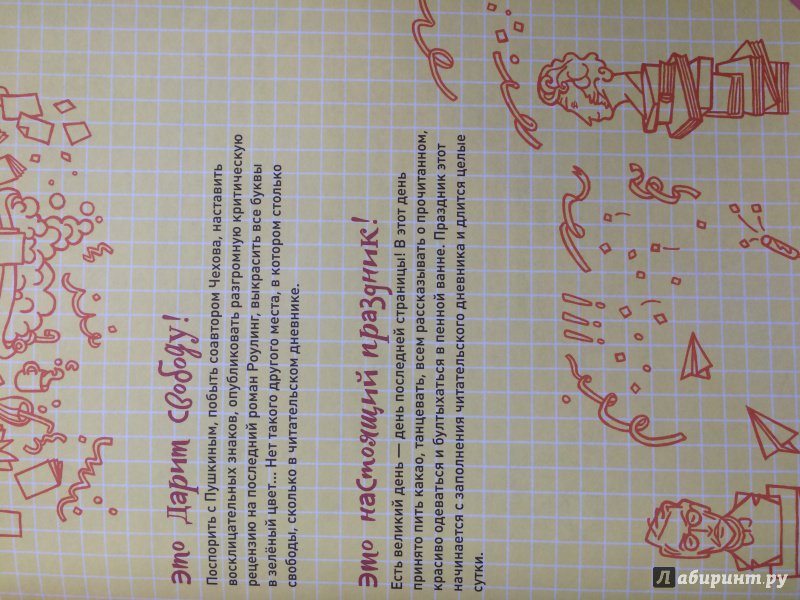 Это Дарит свободу!
Поспорить с Пушкиным, побыть соавтором Чехова, наставить
восклицательных знаков, опубликовать разгромную критическую
рецензию на последний роман Роулинг, выкрасить все буквы
в зелёный цвет... Нет такого другого места, в котором столько
свободы, сколько в читательском дневнике.
Это настоящий праздник!
Есть великий день — день последней страницы! В этот день
принято пить какао, танцевать, всем рассказывать о прочитанном,
красиво одеваться и бултыхаться в пенной ванне. Праздник этот
начинается с заполнения читательского дневника и длится целые
сутки.
Лабиринт.ру